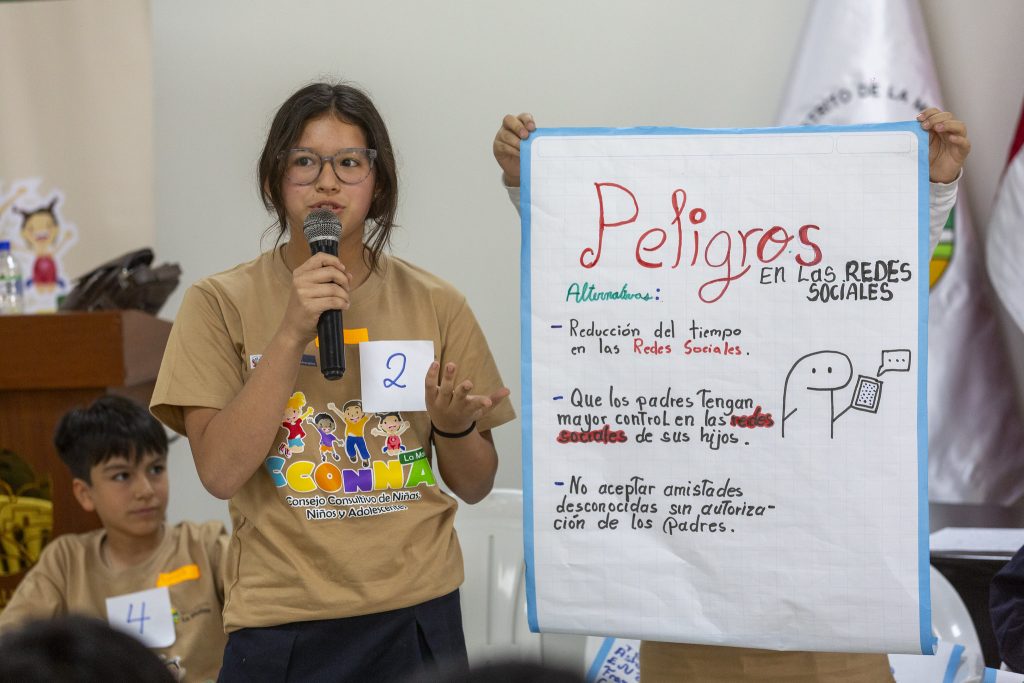 Peligros
EN LAS REDES
SOCIALES
Alternativas:
- Reducción del tiempo
en las Redes Sociales.
- Que los padres Tengan
mayor control en las redes
sociales de sus hijos.
- No aceptar amistades
desconocidas sin autoriza-
ción de los Padres.
2
La
CCONNA
Consejo Consultivo de Niñas,
Niños y Adolescentes
4
DE LA